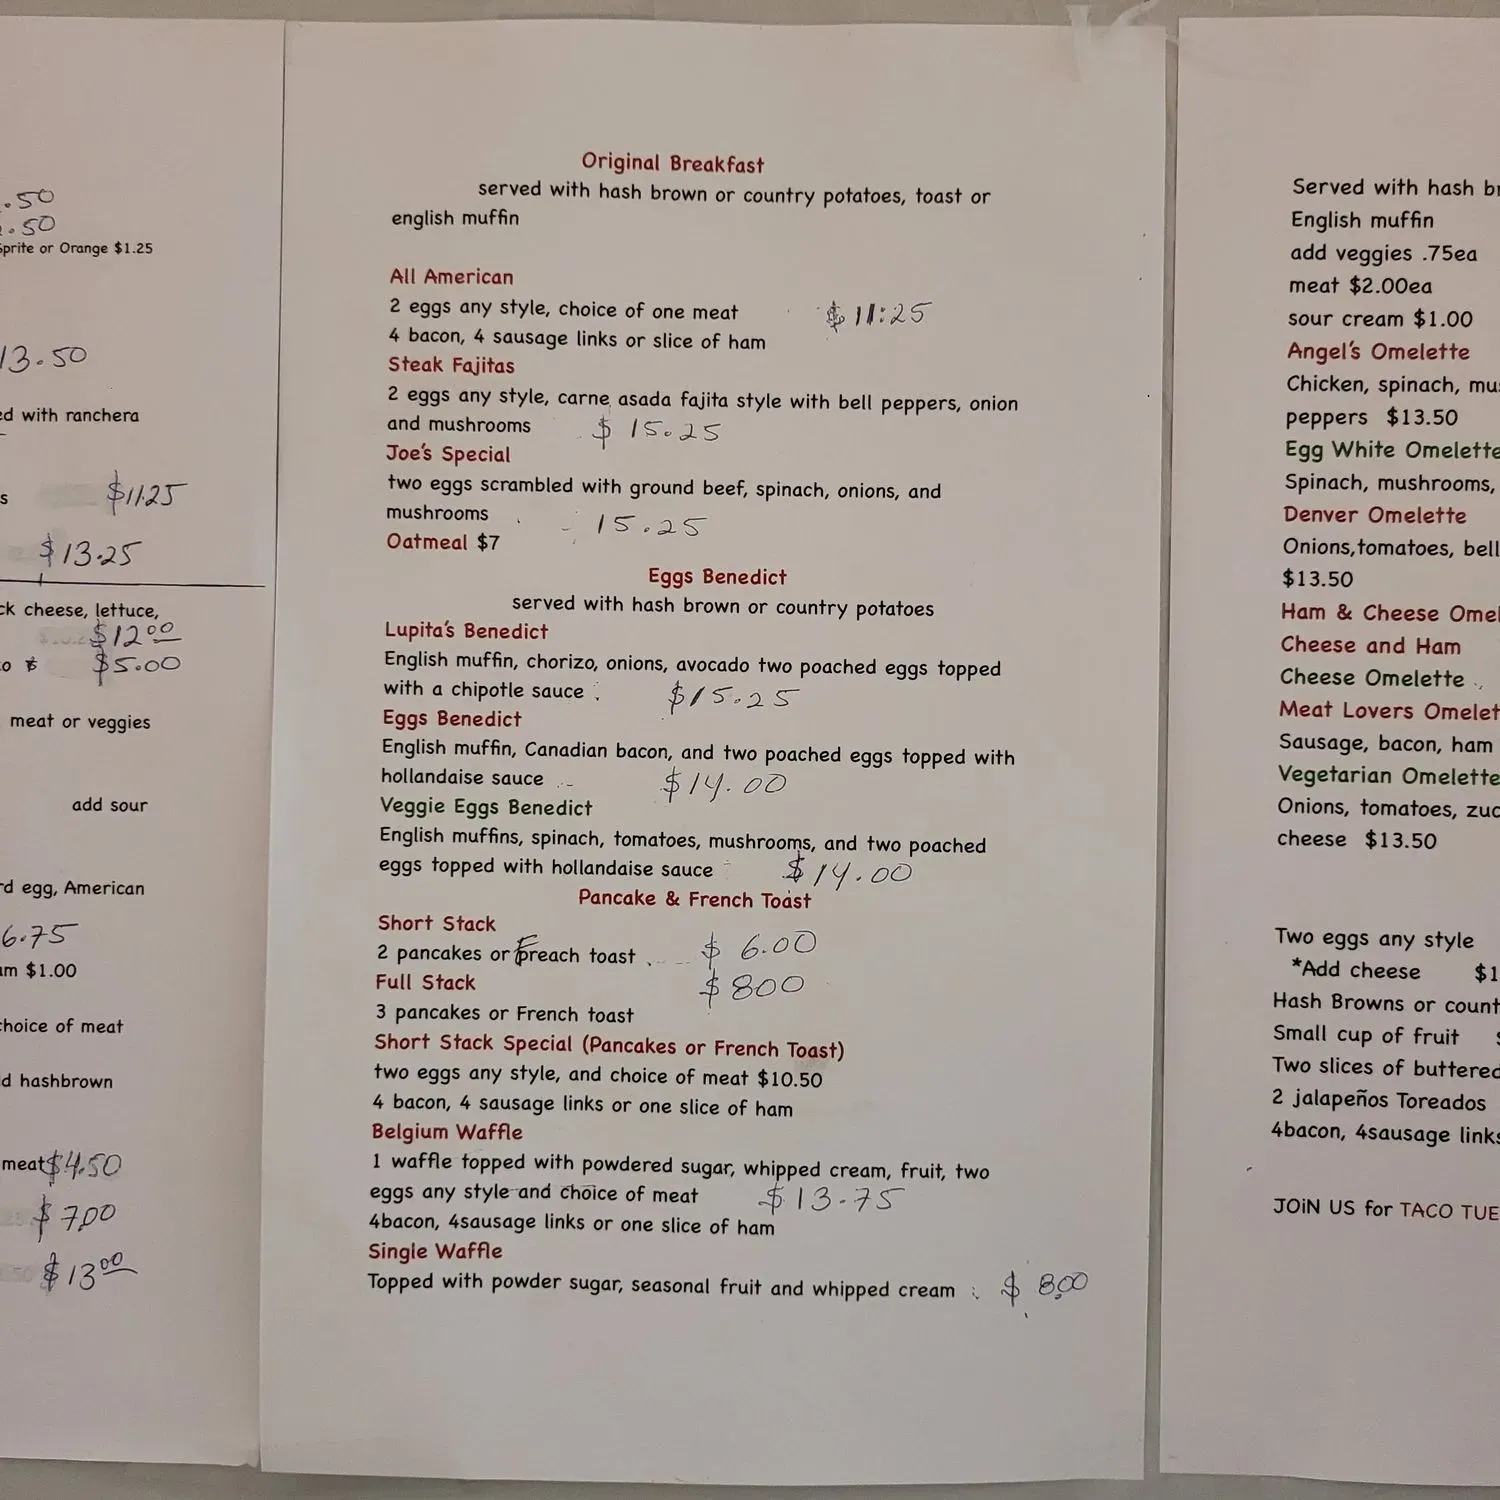 .50
.50
Sprite or Orange $1.25
13.50
ed with ranchera
s $11.25
$13.25
ck cheese, lettuce,
$12.00
$5.00
meat or veggies
add sour
rd egg, American
6.75
am $1.00
choice of meat
d hashbrown
meat $4.50
$7.00
$13.00
Original Breakfast
served with hash brown or country potatoes, toast or
english muffin
All American
2 eggs any style, choice of one meat $11:25
4 bacon, 4 sausage links or slice of ham
Steak Fajitas
2 eggs any style, carne asada fajita style with bell peppers, onion
and mushrooms $15.25
Joe's Special
two eggs scrambled with ground beef, spinach, onions, and
mushrooms 15.25
Oatmeal $7
Eggs Benedict
served with hash brown or country potatoes
Lupita's Benedict
English muffin, chorizo, onions, avocado two poached eggs topped
with a chipotle sauce $15.25
Eggs Benedict
English muffin, Canadian bacon, and two poached eggs topped with
hollandaise sauce $14.00
Veggie Eggs Benedict
English muffins, spinach, tomatoes, mushrooms, and two poached
eggs topped with hollandaise sauce $14.00
Pancake & French Toast
Short Stack
2 pancakes or Freach toast $6.00
Full Stack $800
3 pancakes or French toast
Short Stack Special (Pancakes or French Toast)
two eggs any style, and choice of meat $10.50
4 bacon, 4 sausage links or one slice of ham
Belgium Waffle
1 waffle topped with powdered sugar, whipped cream, fruit, two
eggs any style and choice of meat $13.75
4bacon, 4sausage links or one slice of ham
Single Waffle
Topped with powder sugar, seasonal fruit and whipped cream $8.00
Served with hash br
English muffin
add veggies .75ea
meat $2.00ea
sour cream $1.00
Angel's Omelette
Chicken, spinach, mus
peppers $13.50
Egg White Omelette
Spinach, mushrooms,
Denver Omelette
Onions,tomatoes, bell
$13.50
Ham & Cheese Omel
Cheese and Ham
Cheese Omelette
Meat Lovers Omelet
Sausage, bacon, ham
Vegetarian Omelette
Onions, tomatoes, zuc
cheese $13.50
Two eggs any style
*Add cheese $1
Hash Browns or count
Small cup of fruit
Two slices of buttered
2 jalapeños Toreados
4bacon, 4sausage links
JOiN US for TACO TUE